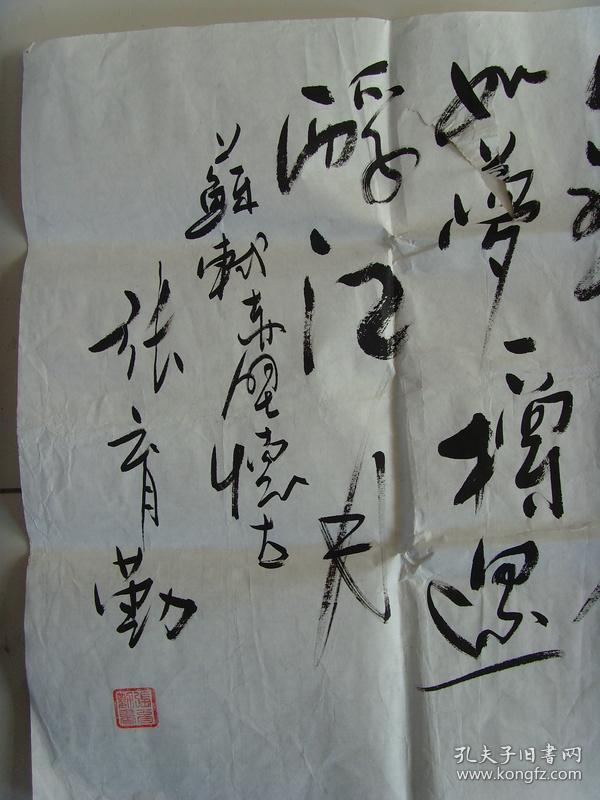 如夢一樽還
酹江月
蘇軾赤壁懷古
張育勤
孔夫子旧书网
www.kongfz.com